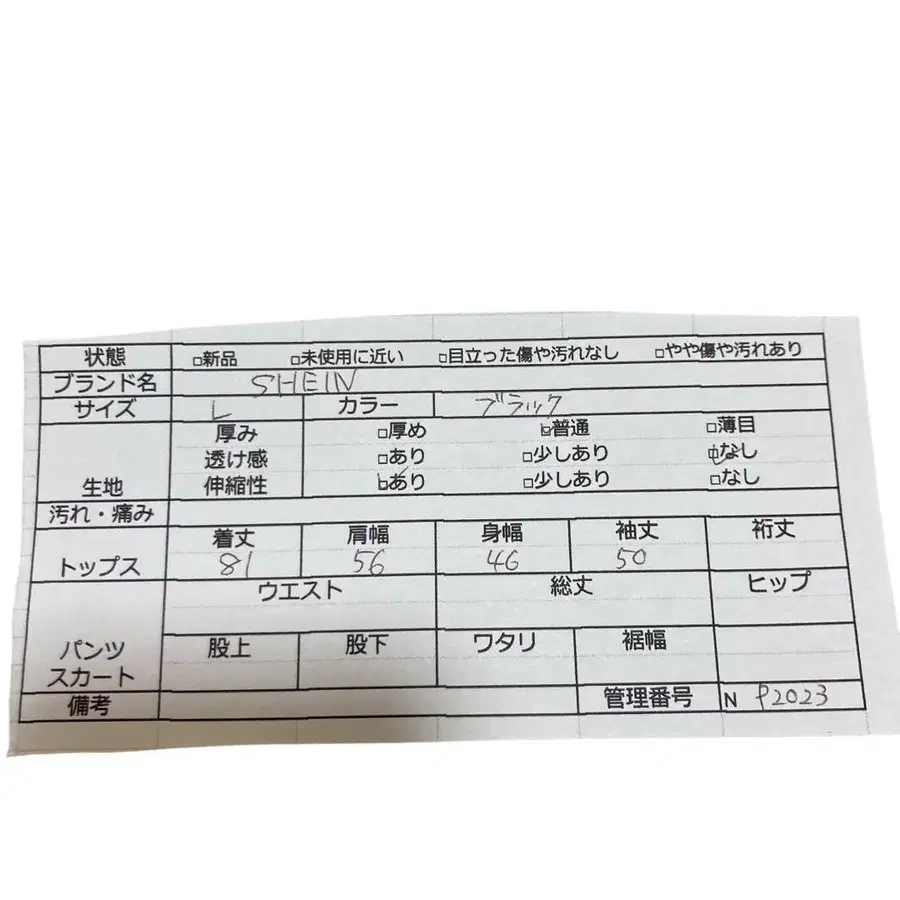 状態 □新品 □未使用に近い □目立った傷や汚れなし □やや傷や汚れあり
ブランド名 SHEIN
サイズ L カラー ブラック
厚み □厚め □普通 □薄目
透け感 □あり □少しあり □なし
生地 伸縮性 □あり □少しあり □なし
汚れ・痛み
着丈 肩幅 身幅 袖丈 裄丈
トップス 81 56 46 50
ウエスト 総丈 ヒップ
股上 股下 ワタリ 裾幅
パンツ
スカート
備考 管理番号 N P2023